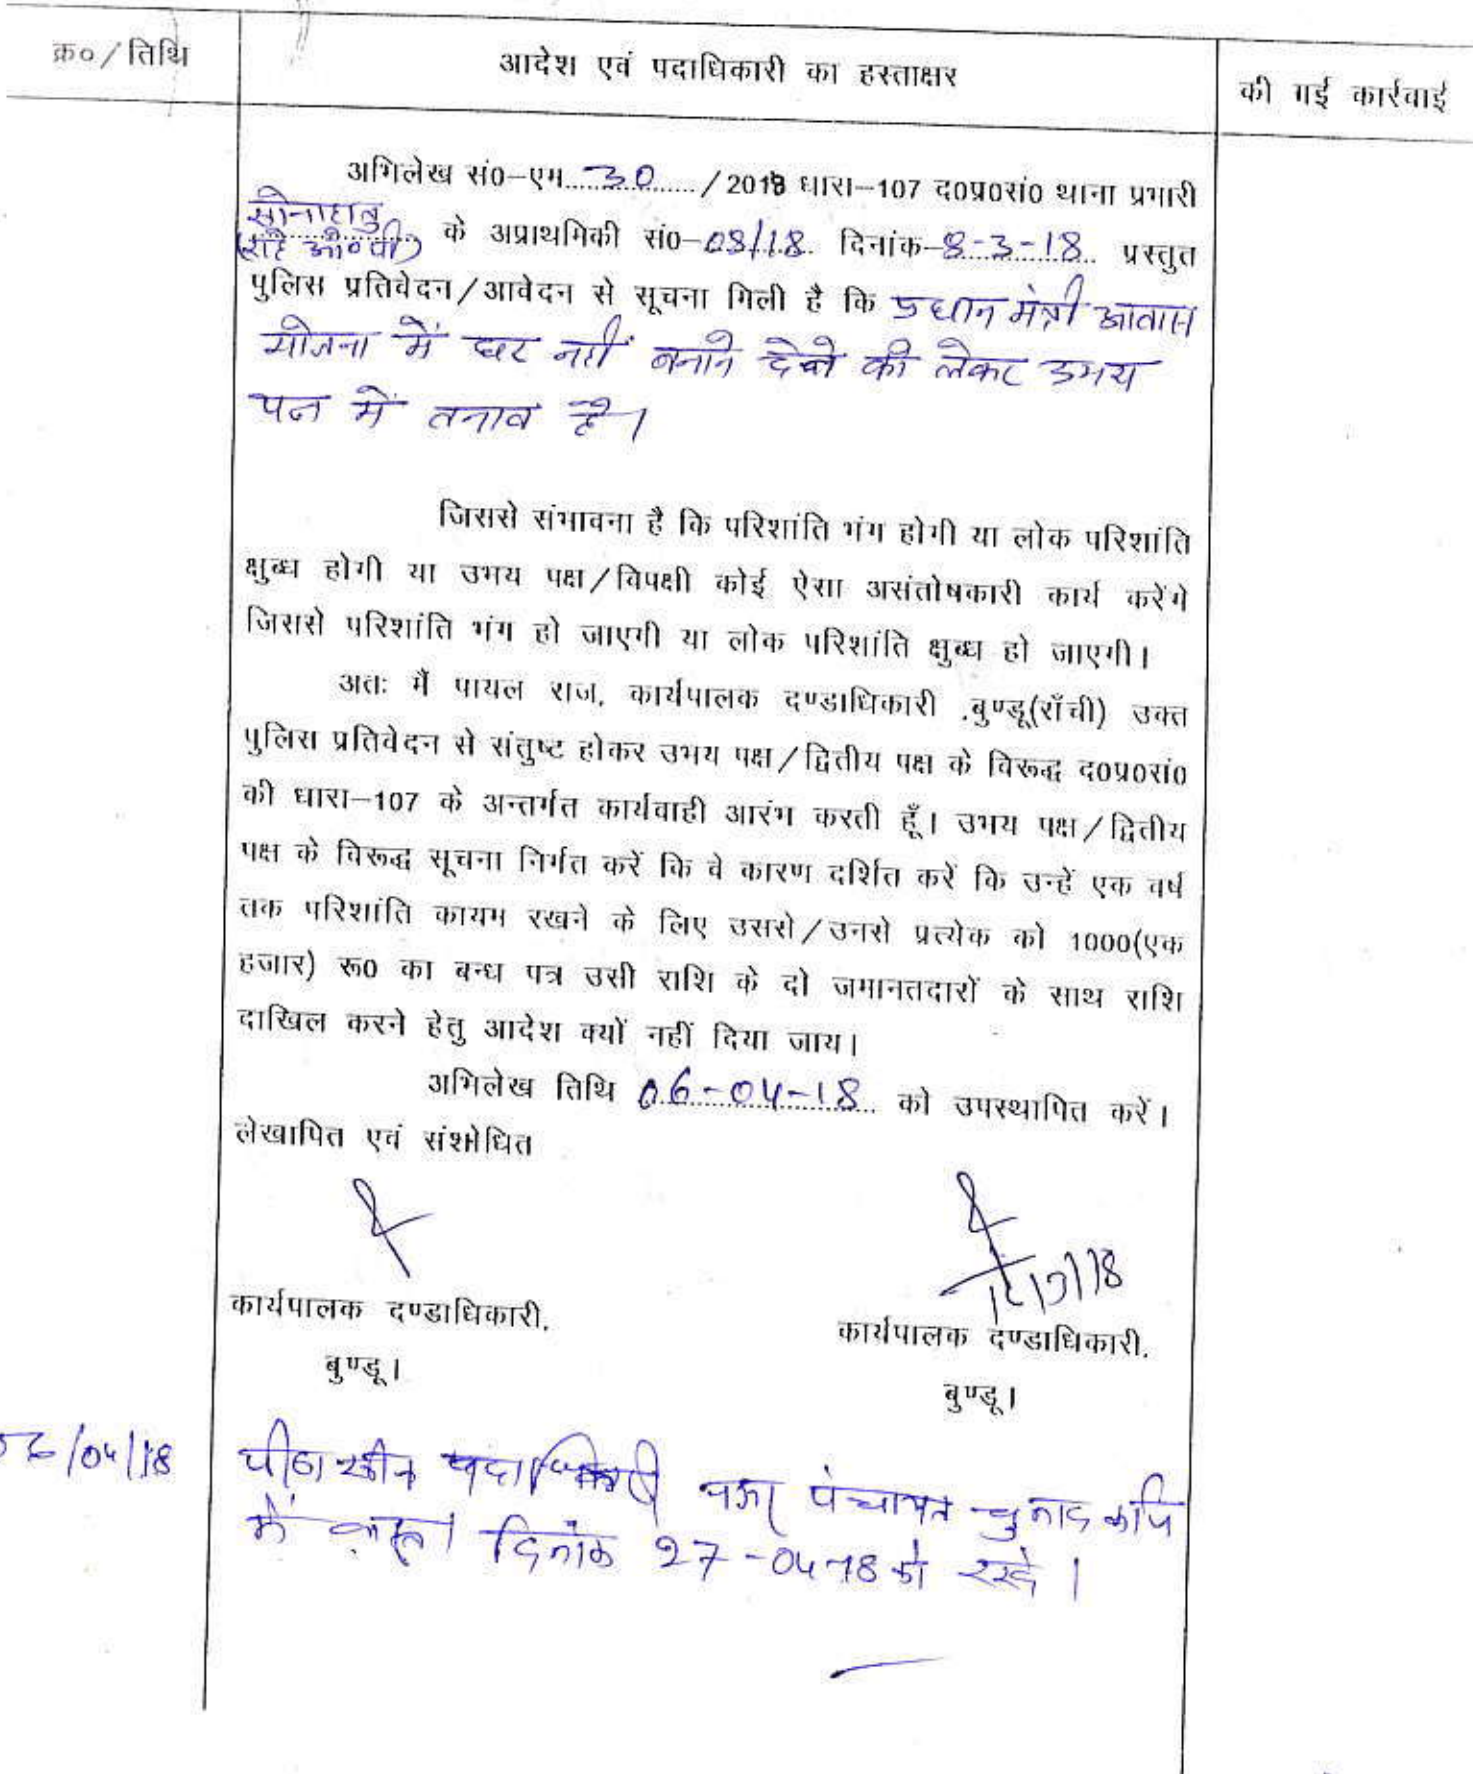 क्र०/तिथि
आदेश एवं पदाधिकारी का हस्ताक्षर
की गई कार्रवाई
अभिलेख सं0–एम 30 /2018 धारा–107 द0प्र0सं0 थाना प्रभारी
सोनाहातु
(राहे ओ०पी) के अप्राथमिकी सं0–08/18 दिनांक–8-3-18 प्रस्तुत
पुलिस प्रतिवेदन/आवेदन से सूचना मिली है कि प्रधान मंत्री आवास
योजना में घर नहीं बनाने देने को लेकर उभय
पक्ष में तनाव है।
जिससे संभावना है कि परिशांति भंग होगी या लोक परिशांति
क्षुब्ध होगी या उभय पक्ष/विपक्षी कोई ऐसा असंतोषकारी कार्य करेंगे
जिससे परिशांति भंग हो जाएगी या लोक परिशांति क्षुब्ध हो जाएगी।
अतः मैं पायल राज, कार्यपालक दण्डाधिकारी ,बुण्डू(राँची) उक्त
पुलिस प्रतिवेदन से संतुष्ट होकर उभय पक्ष/द्वितीय पक्ष के विरूद्ध द0प्र0सं0
की धारा–107 के अन्तर्गत कार्यवाही आरंभ करती हूँ। उभय पक्ष/द्वितीय
पक्ष के विरूद्ध सूचना निर्गत करें कि वे कारण दर्शित करें कि उन्हें एक वर्ष
तक परिशांति कायम रखने के लिए उससे/उनसे प्रत्येक को 1000(एक
हजार) रू0 का बन्ध पत्र उसी राशि के दो जमानतदारों के साथ राशि
दाखिल करने हेतु आदेश क्यों नहीं दिया जाय।
अभिलेख तिथि 06-04-18 को उपस्थापित करें।
लेखापित एवं संशोधित
कार्यपालक दण्डाधिकारी,
बुण्डू।
कार्यपालक दण्डाधिकारी,
बुण्डू।
06/04/18 पीठासीन पदाधिकारी नगर पंचायत चुनाव कार्य
में व्यस्त। दिनांक 27-04-18 को रखें।